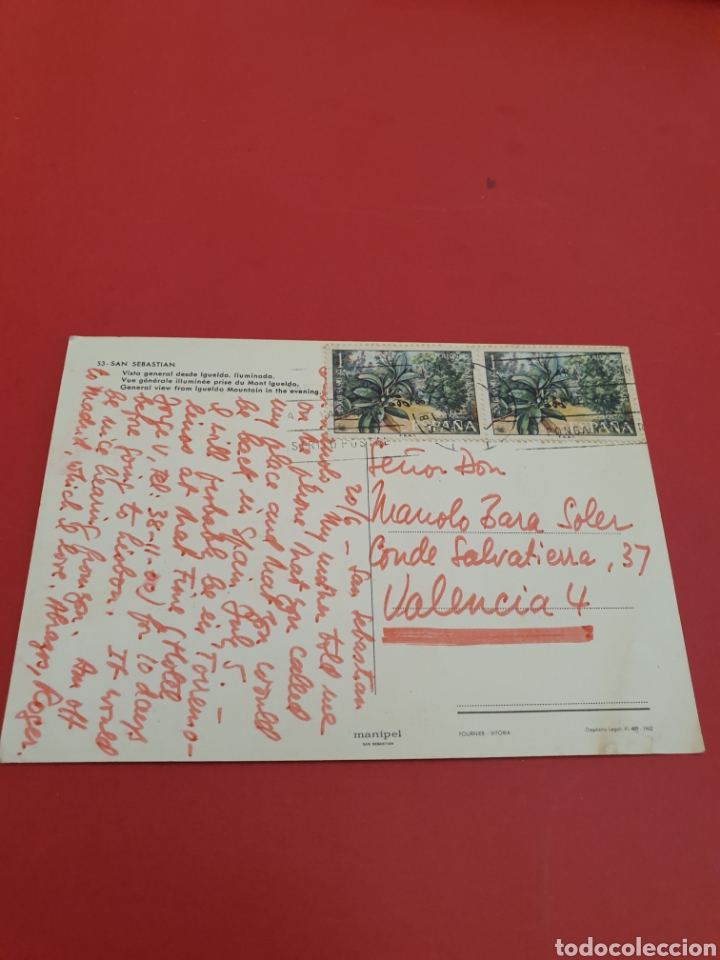 53-SAN SEBASTIAN
Vista general desde Igueldo. Iluminada.
Vue générale illuminée prise du Mont Igueldo.
General view from Igueldo Mountain in the evening.
1
ESPAÑA
1
ESPAÑA
20/6 - San Sebastian
My sister told me
on phone that you called
my place and that you would
be back in Spain July 5. -
I will probably be in Torremo-
linos at that time (Hotel
tel: 38-11-00) for 10 days
before going to Lisbon. It would
be nice hearing from you. Am off
to Madrid, which I love. Abrazos, Roger.
Señor Don
Manolo Bara Soler
Conde Salvatierra, 37
Valencia 4
manipel
SAN SEBASTIAN
FOURNIER - VITORIA
Depósito Legal: VI. 1962
todocoleccion